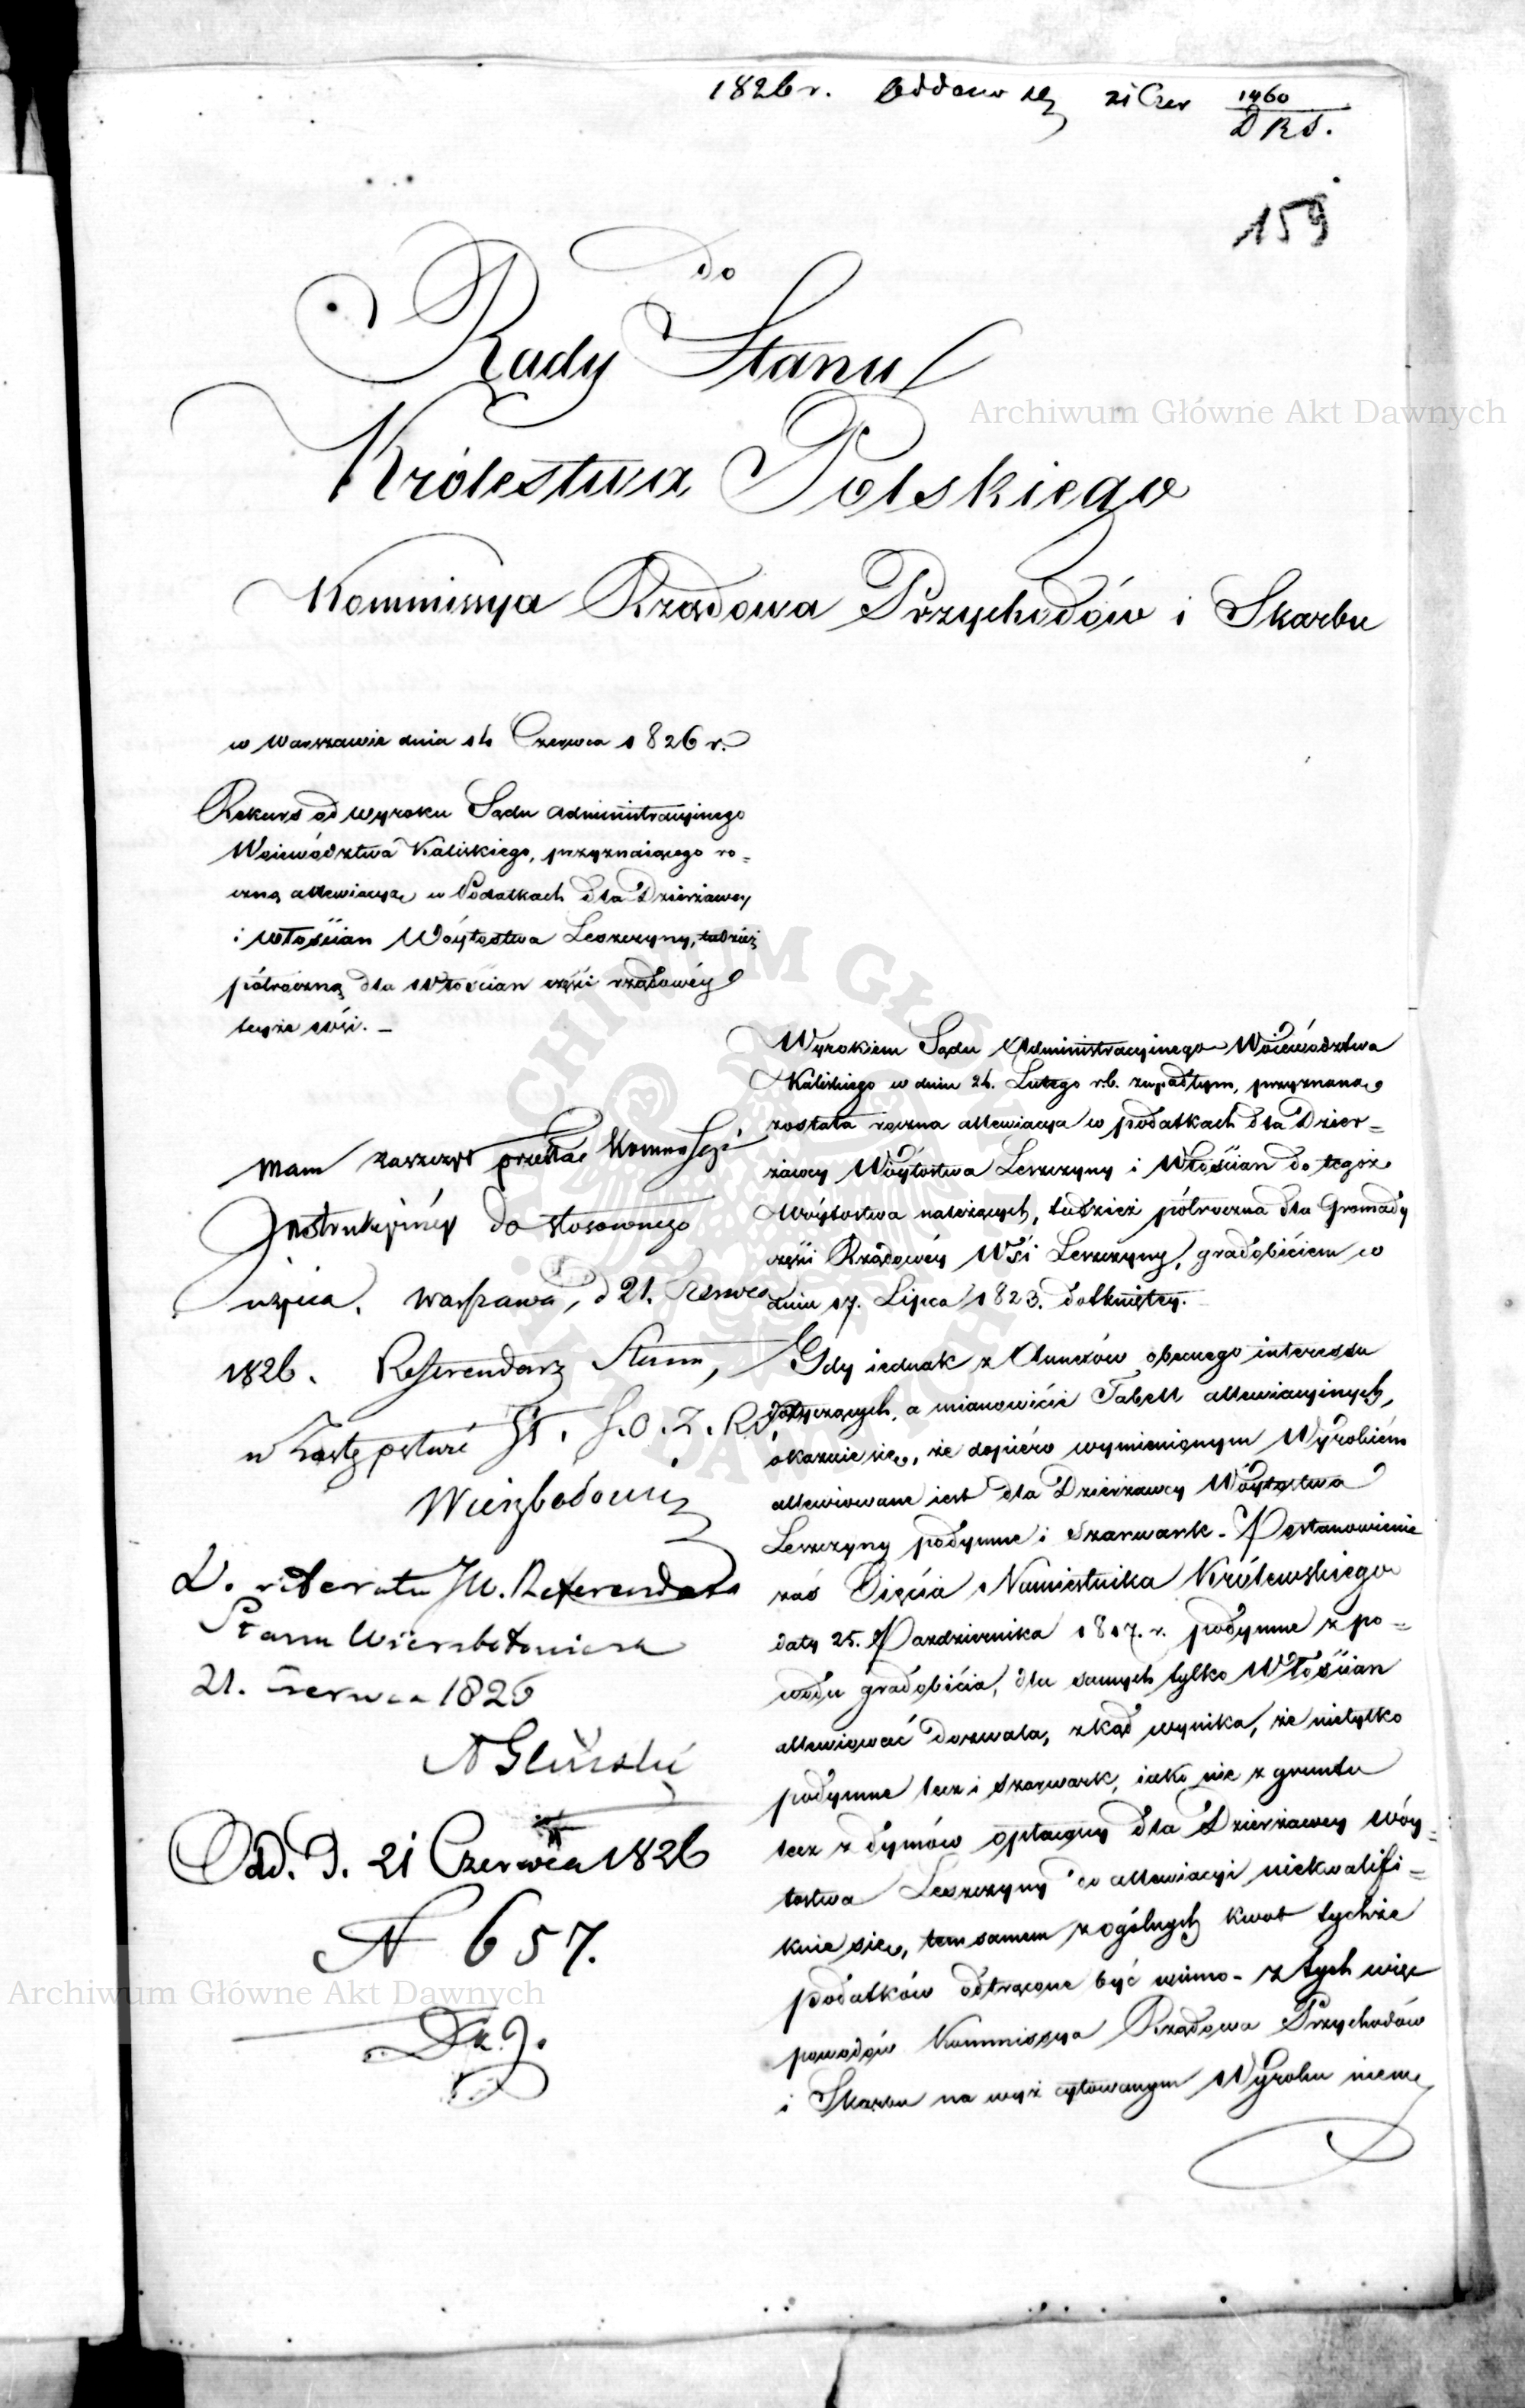 1826 r. Oddano 21 Czer 1460
DRS.
159
do
Rady Stanu
Królestwa Polskiego
Archiwum Główne Akt Dawnych
Kommissya Rządowa Przychodów i Skarbu
w Warszawie dnia 14 Czerwca 1826 r.
Rekurs od wyroku Sądu Administracyinego
Woiewództwa Kaliskiego, przyznaiącego ro=
czną allewiacyą w Podatkach dla Dzierżawcy
i Włościan Wóytostwa Leszczyny, tudzież
półroczną dla Włościan części rządowéy
teyże wsi. —
Mam zaszczyt przesłać Kommissyi
Instrukcyinéy do stosownego
użycia. Warszawa, d 21. Czerwca
1826. Referendarz Stanu,
w Zastępstwie
Wierzbołowicz
Z referatu JW. Referendarza
Stanu Wierzbołowicza
21. Czerwca 1826
A Gliński
Odd. D. 21 Czerwca 1826
N 657.
Archiwum Główne Akt Dawnych
Wyrokiem Sądu Administracyinego Woiewództwa
Kaliskiego w dniu 24. Lutego r.b. zapadłym, przyznana
została roczna allewiacya w podatkach dla Dzier=
żawcy Wóytostwa Leszczyny i Włościan do tegoż
Wóytostwa należących, tudzież półroczna dla Gromady
części Rządowéy Wsi Leszczyny, gradobiciem w
dniu 17. Lipca 1823. dotkniętey.
Gdy iednak z Annexów obecnego interessu
dotyczących, a mianowicie Tabell allewiacyinych,
okazuie się, że dopiéro wymienionym Wyrokiem
allewiowane iest dla Dzierżawcy Wóytostwa
Leszczyny podymne i szarwark. Postanowienie
zaś Xięcia Namiestnika Królewskiego
daty 25. Pazdziernika 1817. r. podymne z po=
wodu gradobicia, dla samych tylko Włościan
allewiować dozwala, zkąd wynika, że nietylko
podymne lecz i szarwark, iako nie z gruntu
lecz z dymów opłacany dla Dzierżawcy Wóy=
tostwa Leszczyny do allewiacyi niekwalifi=
kuie się, tem samem z ogólnych kwot tychże
podatków odtrącone być winno. Z tych więc
powodów Kommissya Rządowa Przychodów
i Skarbu na wyż cytowanym Wyroku nieme
ARCHIWUM GŁÓWNE AKT DAWNYCH